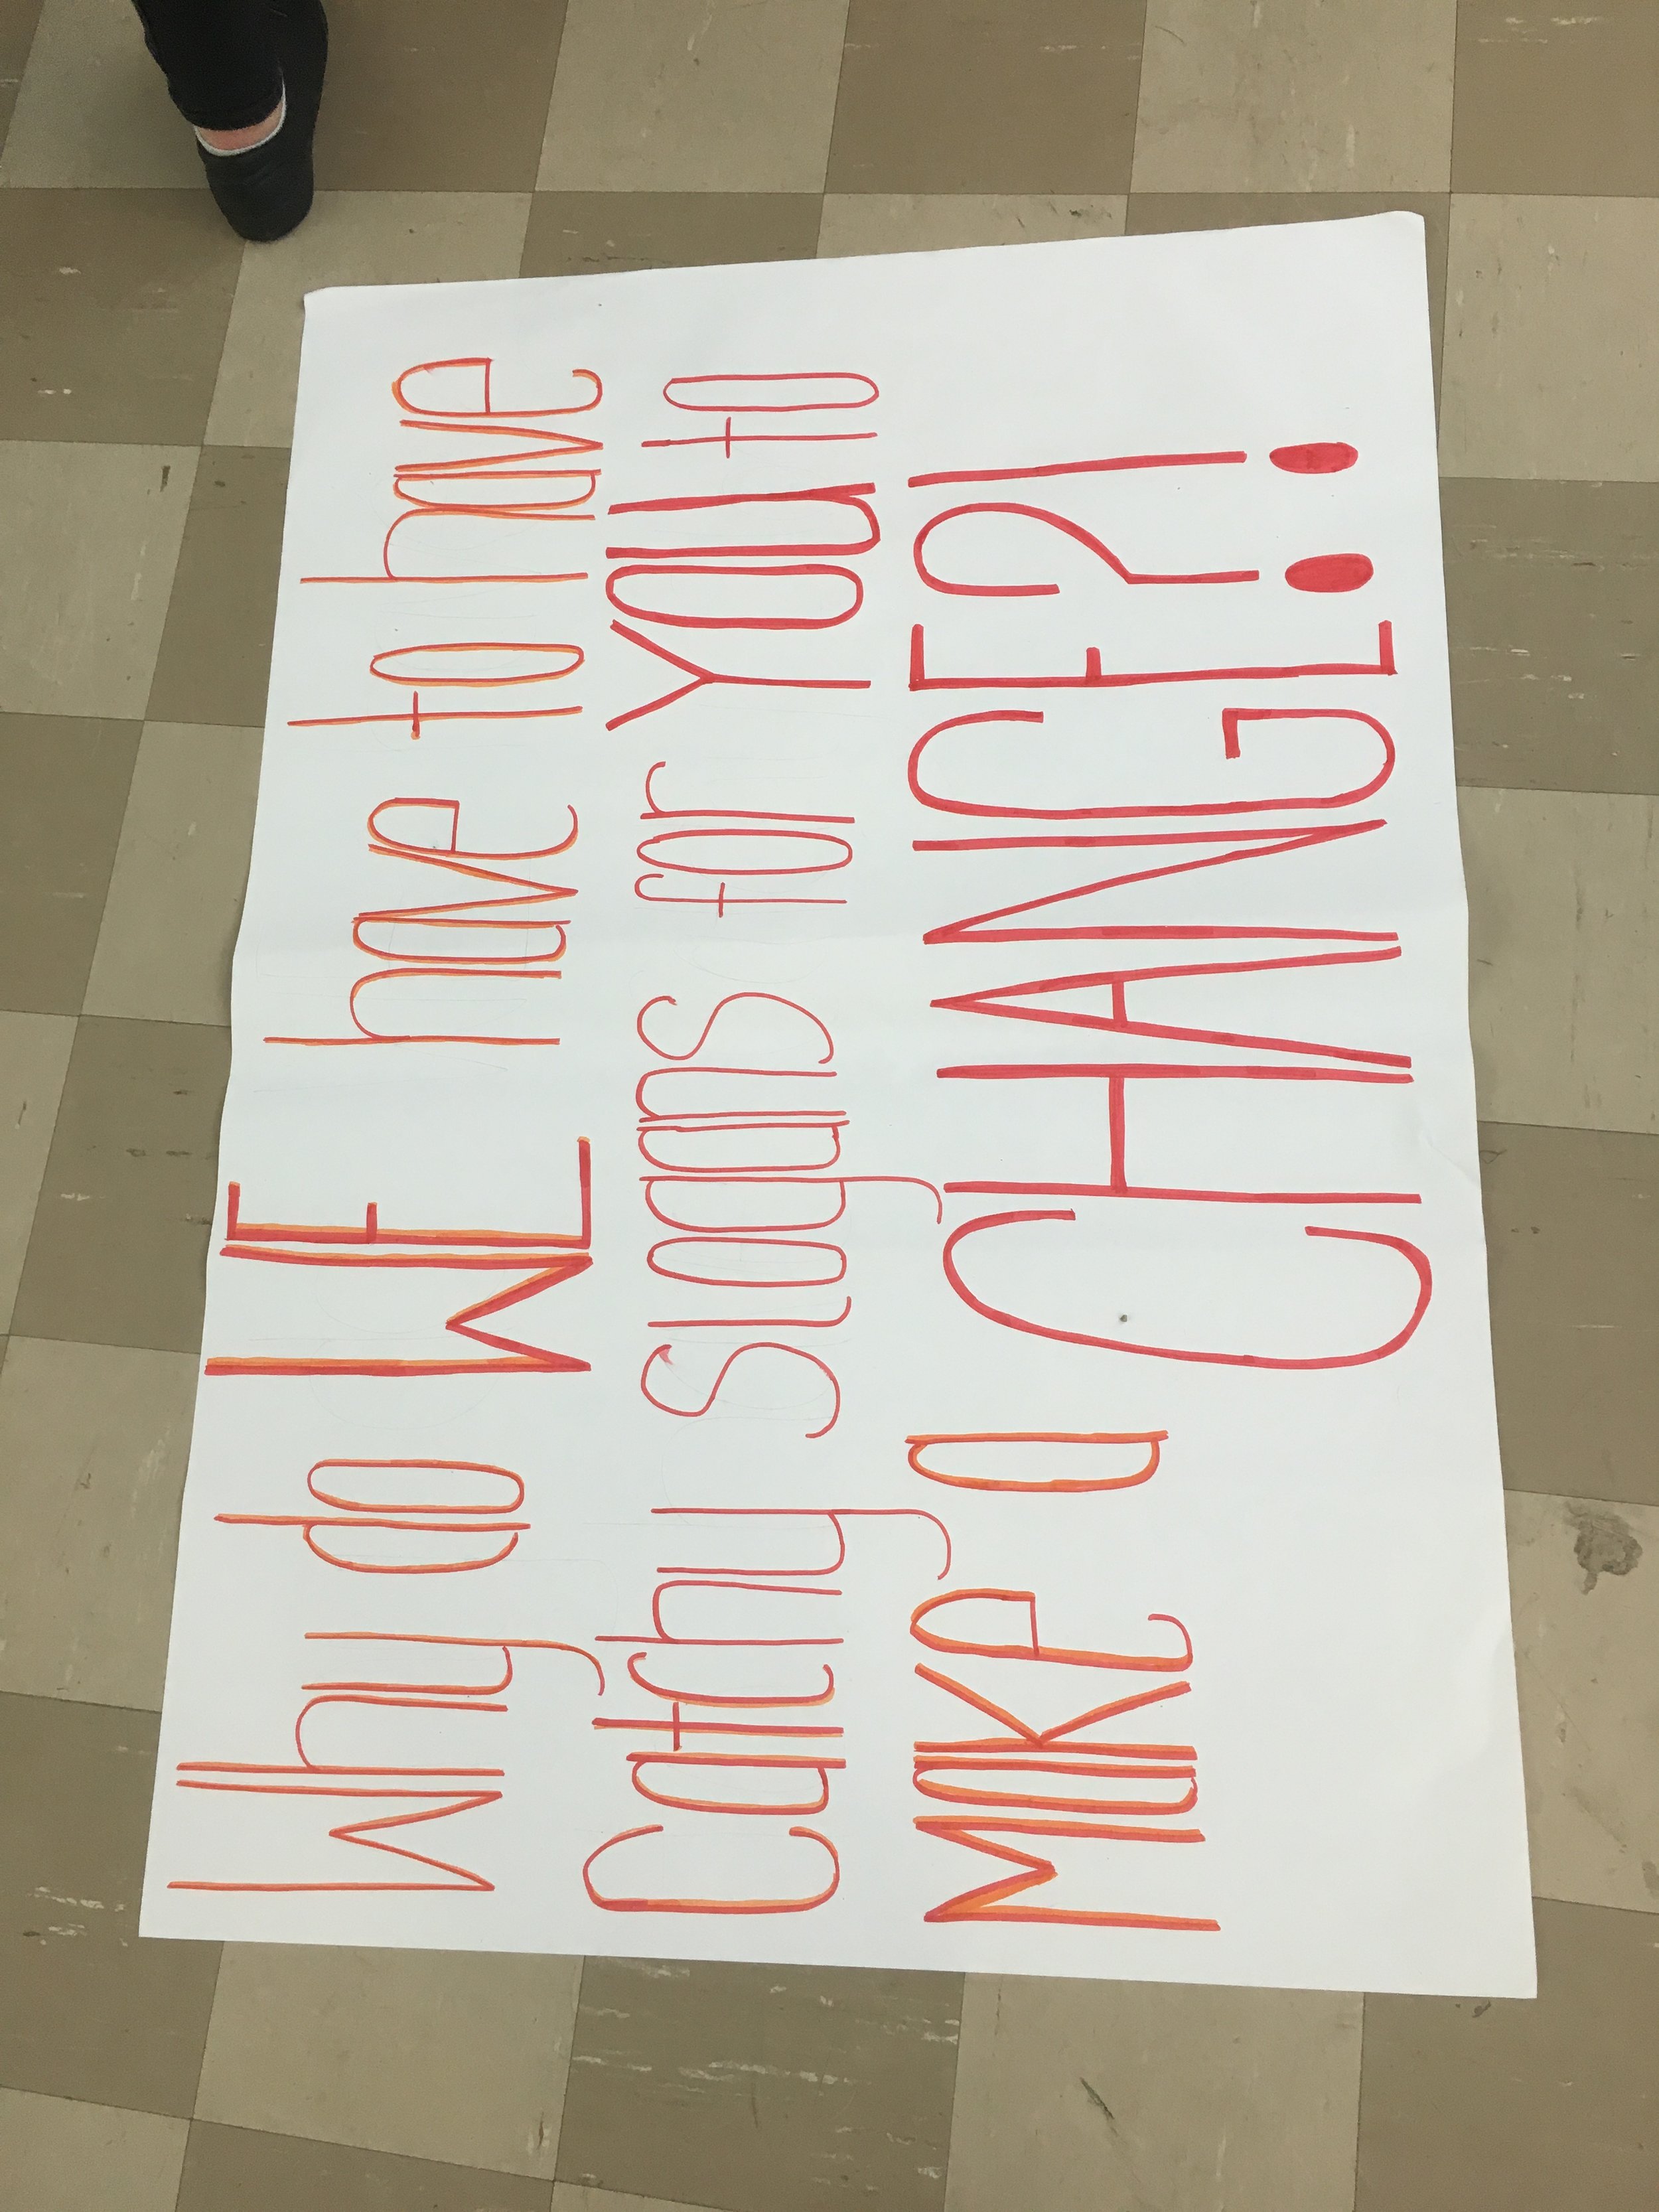 Why do WE have to have
Catchy slogans for YOU to
MaKe a CHANGE?!